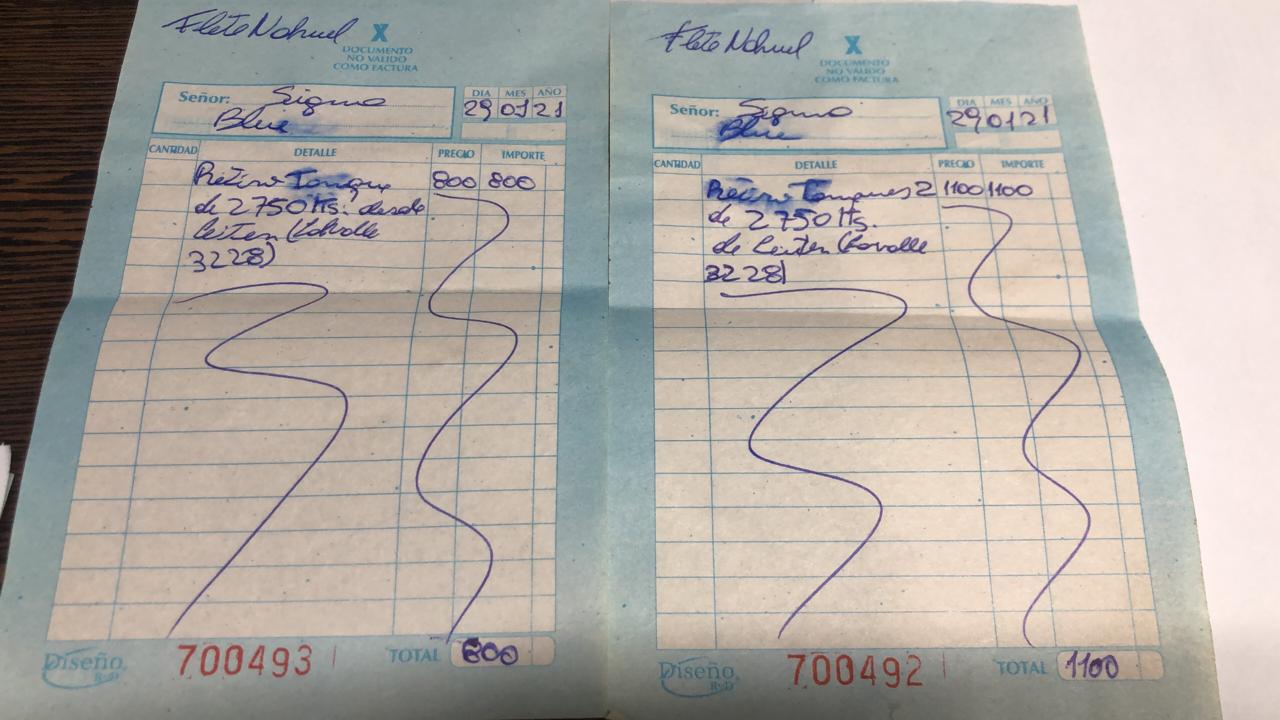 Flete Nahuel
X
DOCUMENTO
NO VALIDO
COMO FACTURA
Señor: Sigma
Blue
DIA MES AÑO
29 01 21
CANTIDAD DETALLE PRECIO IMPORTE
Retiro Tanque 800 800
de 2750 lts. desde
Leiten (Lavalle
3228)
Diseño RyD
700493
TOTAL 800
Flete Nahuel
X
DOCUMENTO
NO VALIDO
COMO FACTURA
Señor: Sigma
Blue
DIA MES AÑO
29 01 21
CANTIDAD DETALLE PRECIO IMPORTE
Retiro Tanques 2 1100 1100
de 2750 lts.
de Leiten (Lavalle
3228)
Diseño RyD
700492
TOTAL 1100